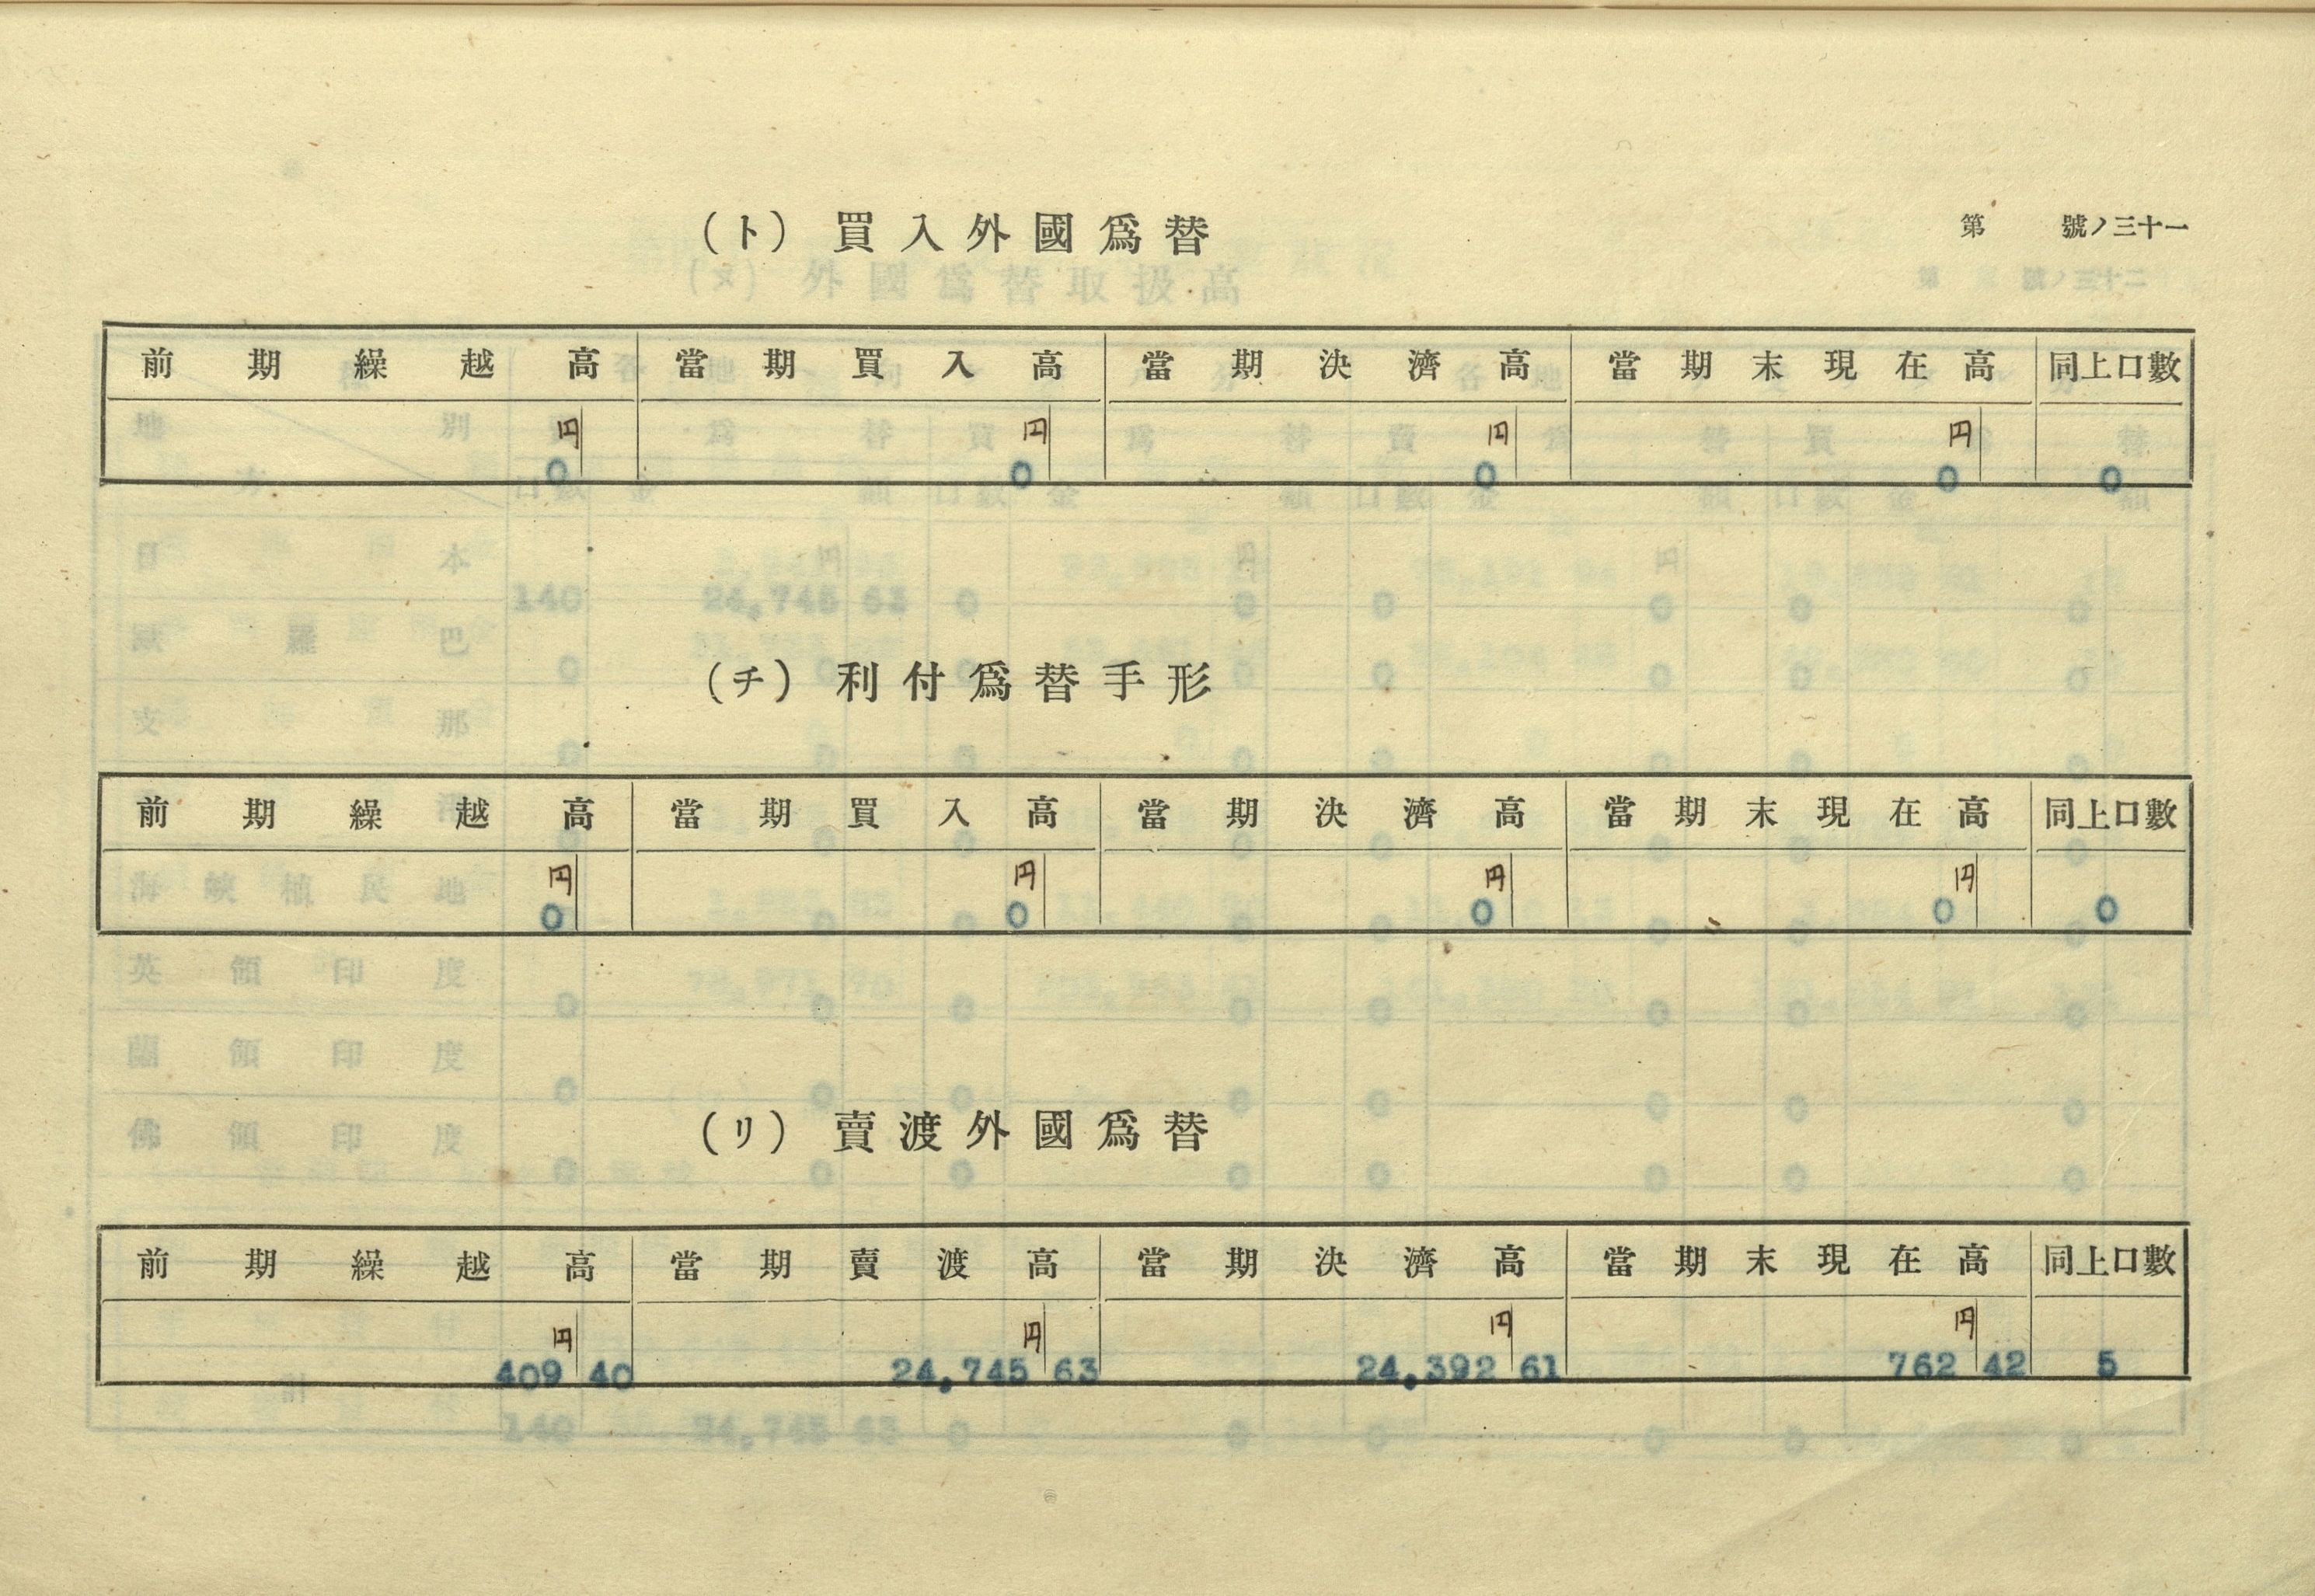 第 號ノ三十一
(ト) 買入外國爲替
前期繰越高 當期買入高 當期決濟高 當期末現在高 同上口數
円 円 円 円
0 0 0 0 0
(チ) 利付爲替手形
前期繰越高 當期買入高 當期決濟高 當期末現在高 同上口數
円 円 円 円
0 0 0 0 0
(リ) 賣渡外國爲替
前期繰越高 當期賣渡高 當期決濟高 當期末現在高 同上口數
円 円 円 円
409 40 24,745 63 24,392 61 762 42 5